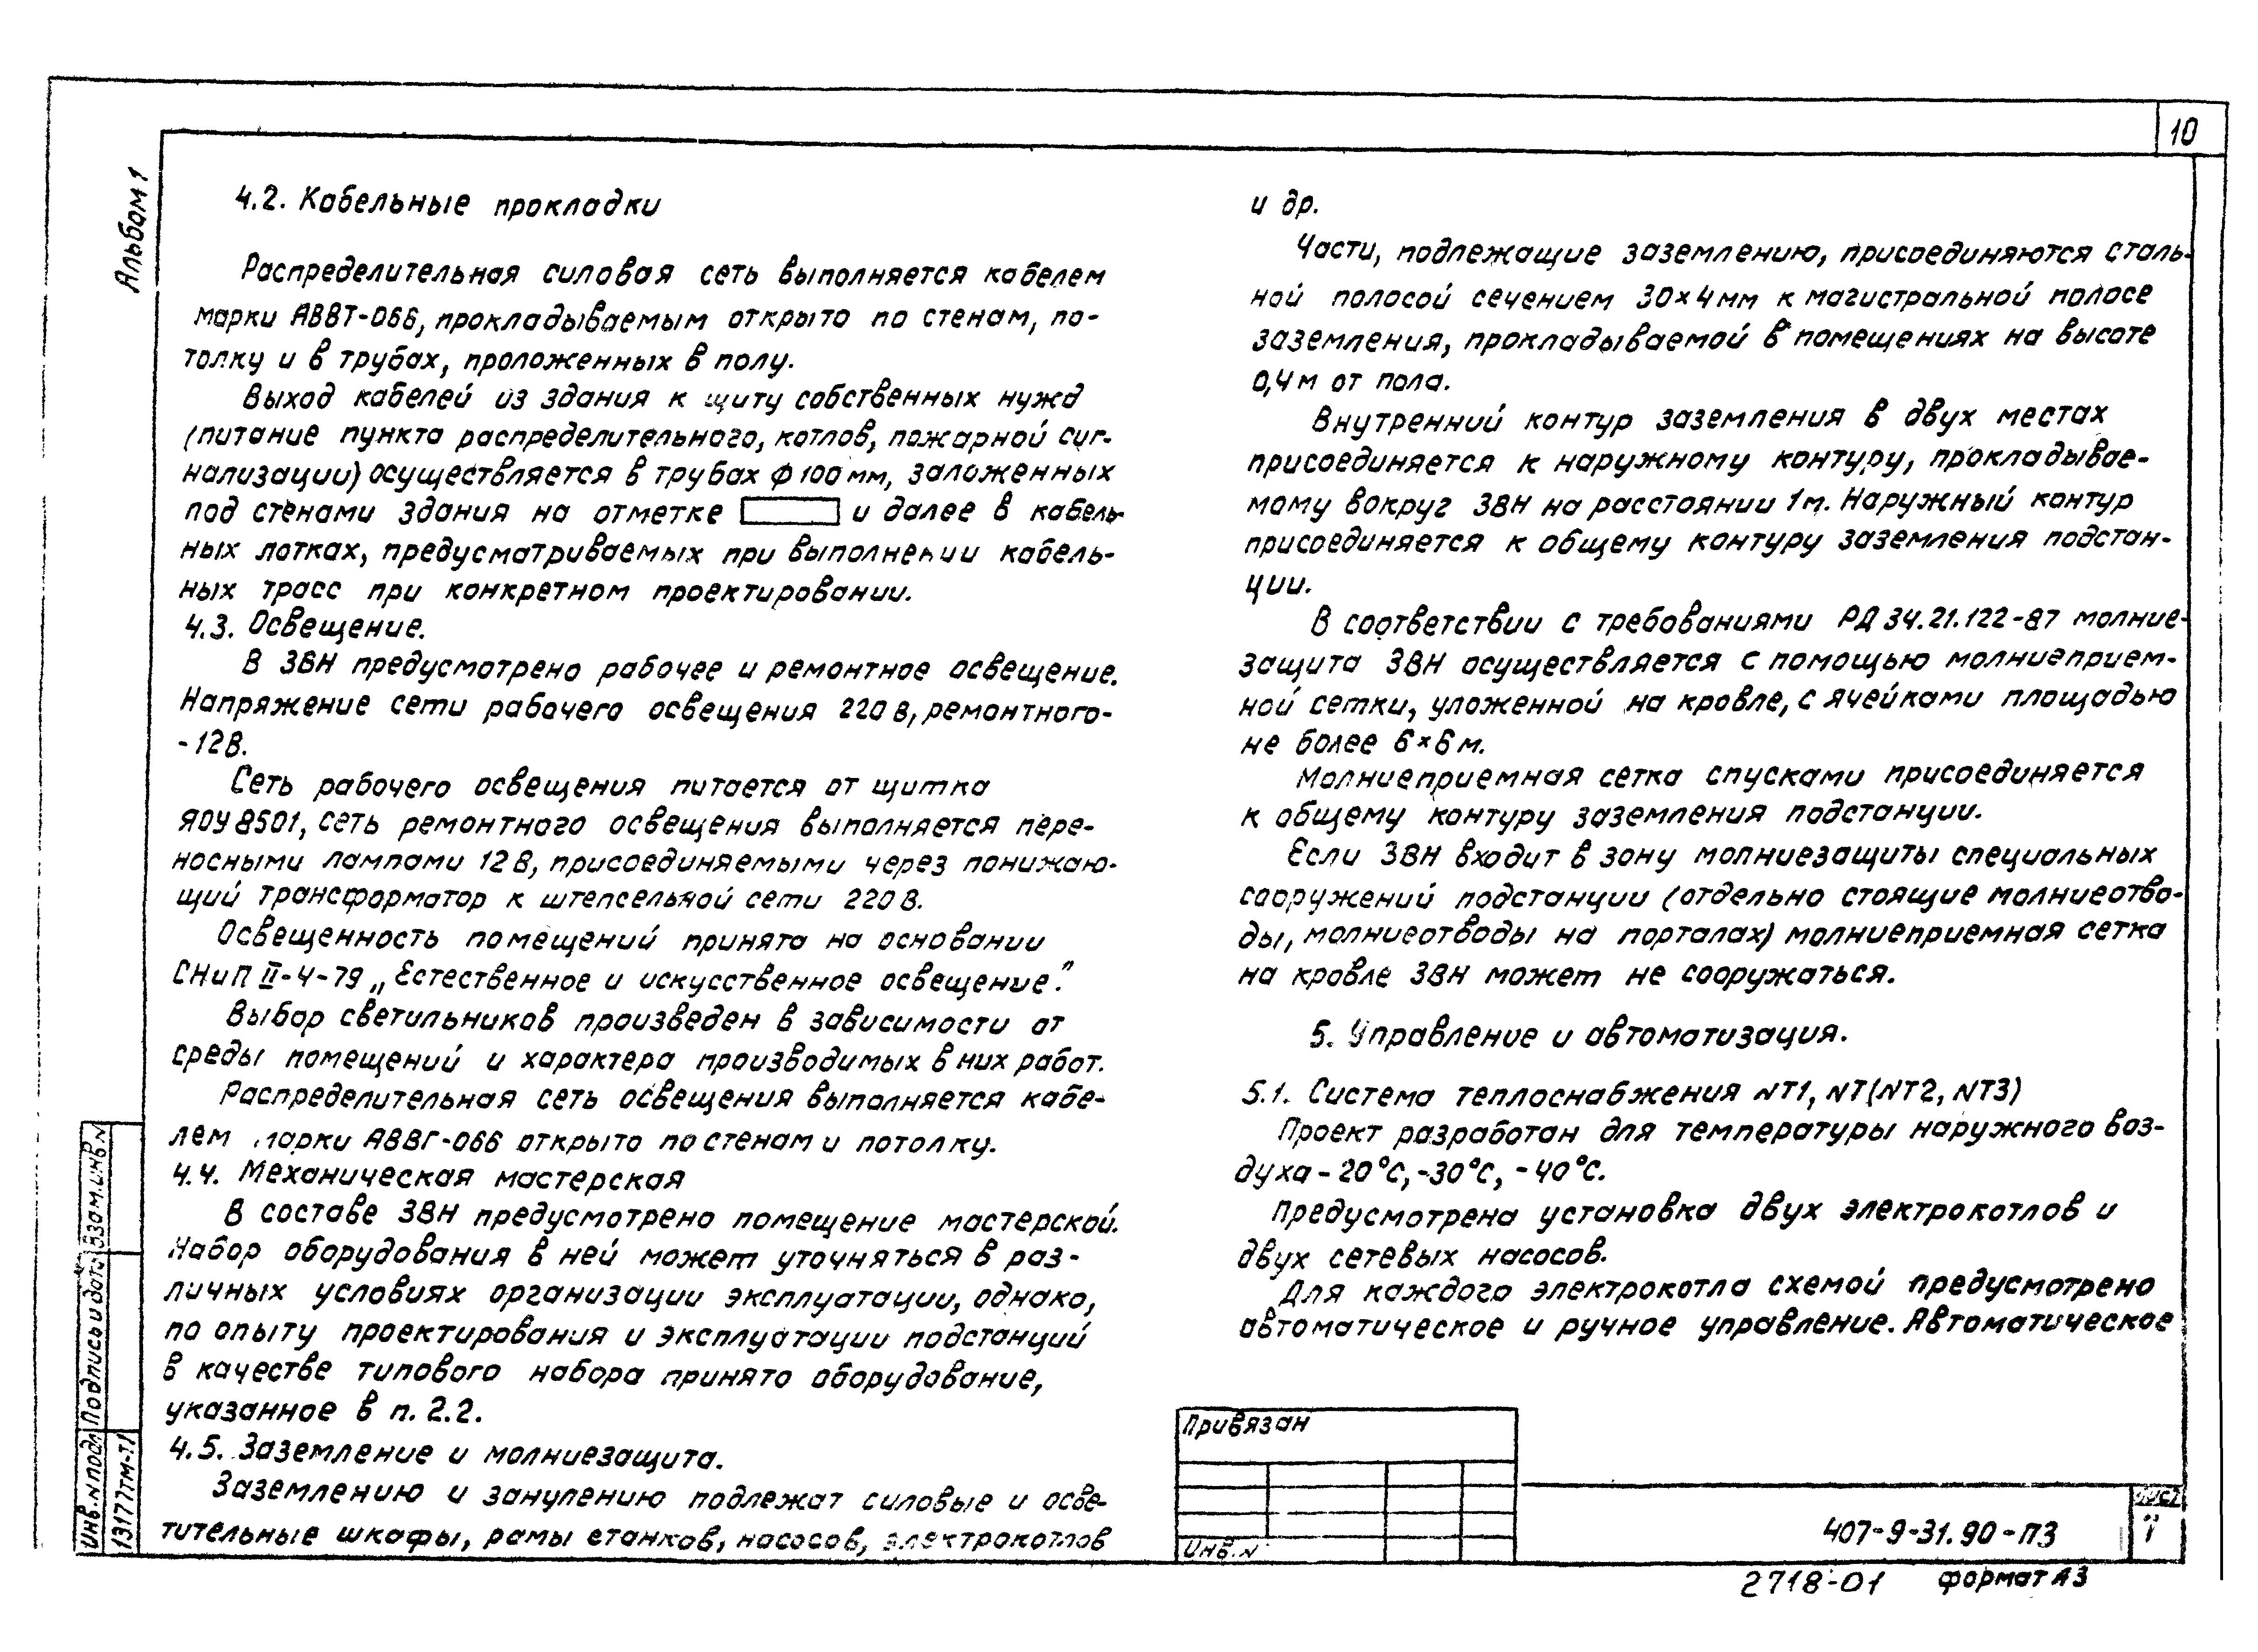 10
Альбом 1
4.2. Кабельные прокладки
Распределительная силовая сеть выполняется кабелем
марки АВВГ-066, прокладываемым открыто по стенам, по-
толку и в трубах, проложенных в полу.
Выход кабелей из здания к щиту собственных нужд
(питание пункта распределительного, котлов, пожарной сиг-
нализации) осуществляется в трубах ф 100 мм, заложенных
под стенами здания на отметке и далее в кабель-
ных лотках, предусматриваемых при выполнении кабель-
ных трасс при конкретном проектировании.
4.3. Освещение.
В ЗВН предусмотрено рабочее и ремонтное освещение.
Напряжение сети рабочего освещения 220 в, ремонтного-
-12В.
Сеть рабочего освещения питается от щитка
ЯОУ8501, сеть ремонтного освещения выполняется пере-
носными лампами 12 В, присоединяемыми через понижаю-
щий трансформатор к штепсельной сети 220 В.
Освещенность помещений принята на основании
СНиП II-4-79 „Естественное и искусственное освещение."
Выбор светильников произведен в зависимости от
среды помещений и характера производимых в них работ.
Распределительная сеть освещения выполняется кабе-
лем марки АВВГ-066 открыто по стенам и потолку.
4.4. Механическая мастерская
В составе ЗВН предусмотрено помещение мастерской.
Набор оборудования в ней может уточняться в раз-
личных условиях организации эксплуатации, однако,
по опыту проектирования и эксплуатации подстанций
в качестве типового набора принято оборудование,
указанное в п. 2.2.
4.5. Заземление и молниезащита.
Заземлению и занулению подлежат силовые и осве-
тительные шкафы, рамы станков, насосов, электрокотлов
и др.
Части, подлежащие заземлению, присоединяются сталь-
ной полосой сечением 30×4 мм к магистральной полосе
заземления, прокладываемой в помещениях на высоте
0,4 м от пола.
Внутренний контур заземления в двух местах
присоединяется к наружному контуру, прокладывае-
мому вокруг ЗВН на расстоянии 1м. Наружный контур
присоединяется к общему контуру заземления подстан-
ции.
В соответствии с требованиями РД 34.21.122-87 молние-
защита ЗВН осуществляется с помощью молниеприем-
ной сетки, уложенной на кровле, с ячейками площадью
не более 6×6 м.
Молниеприемная сетка спусками присоединяется
к общему контуру заземления подстанции.
Если ЗВН входит в зону молниезащиты специальных
сооружений подстанции (отдельно стоящие молниеотво-
ды, молниеотводы на порталах) молниеприемная сетка
на кровле ЗВН может не сооружаться.
5. Управление и автоматизация.
5.1. Система теплоснабжения NT1, NT(NT2, NT3)
Проект разработан для температуры наружного воз-
духа -20°С, -30°С, -40°С.
Предусмотрена установка двух электрокотлов и
двух сетевых насосов.
Для каждого электрокотла схемой предусмотрено
автоматическое и ручное управление. Автоматическое
Привязан
Инв. N
407-9-31.90-ПЗ
Лист
2718-01 формат А3
Инв. N подл
Подпись и дата
Взам. инв. N
13177тм-т1